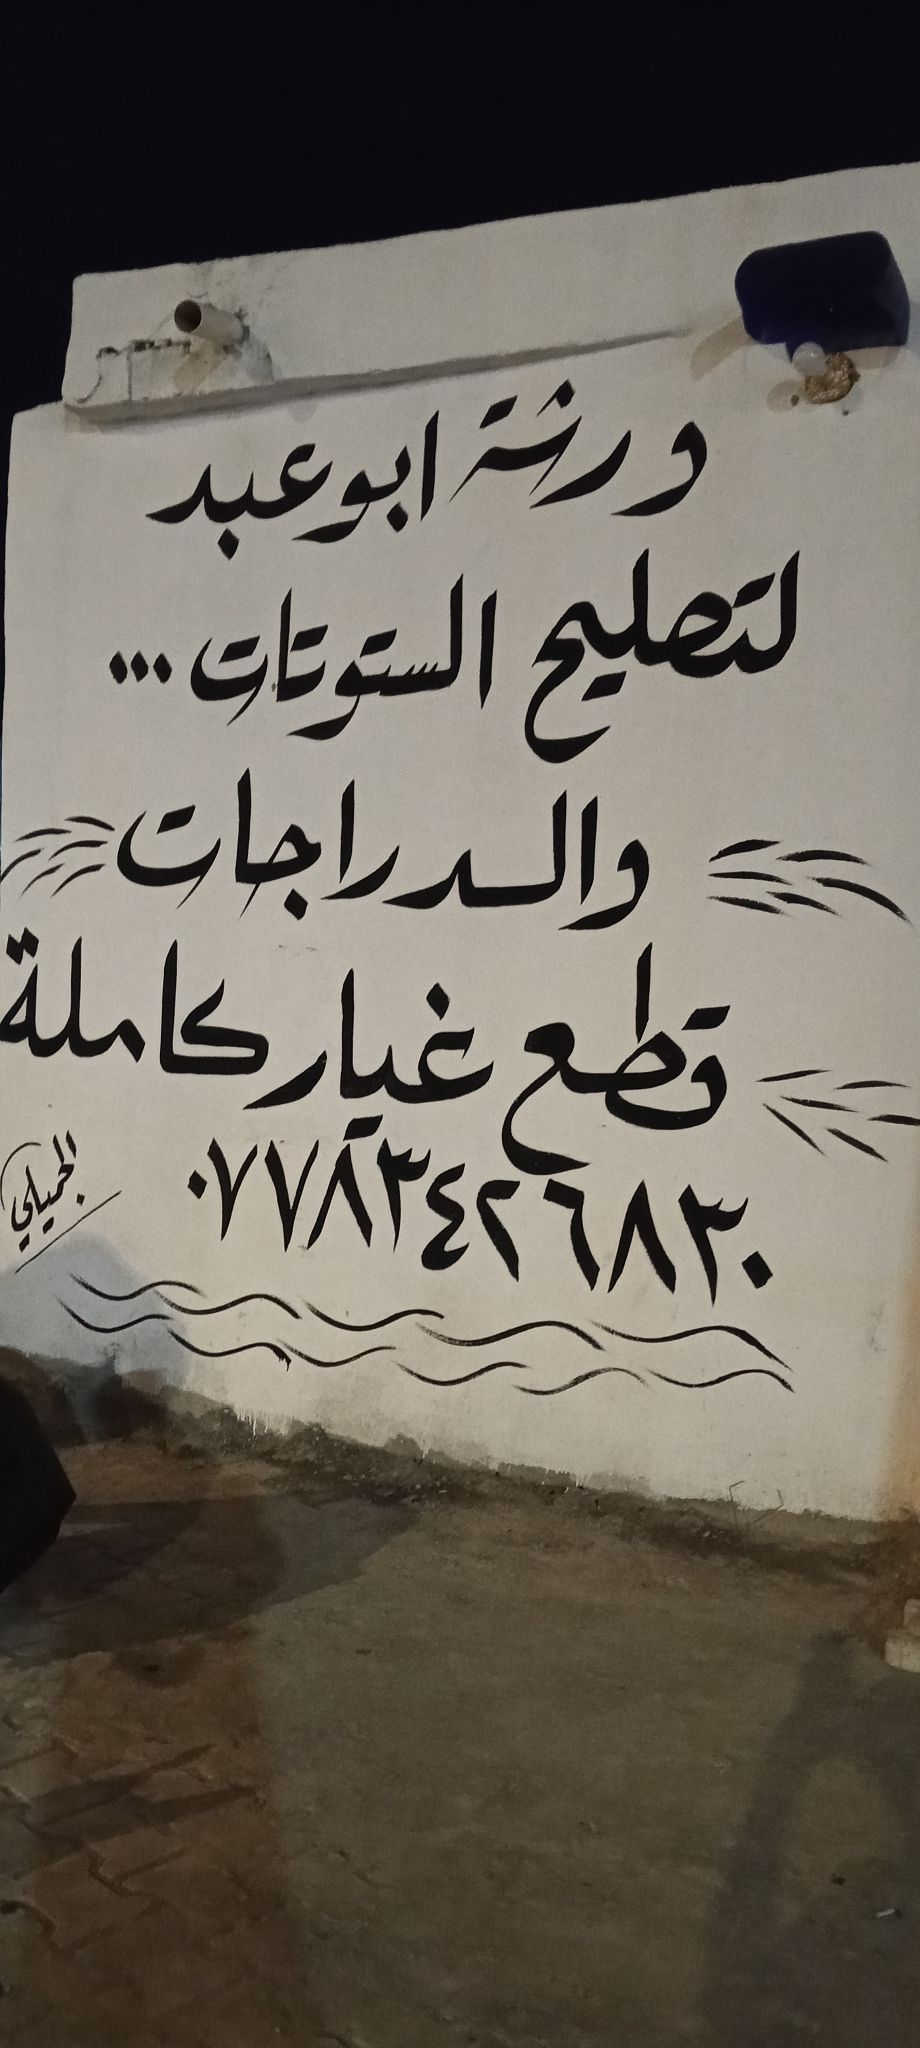 ورشة ابو عبد
لتصليح الستوتات ...
والدراجات
قطع غيار كاملة
٠٧٧٨٣٤٢٦٨٣٠
الجميلي